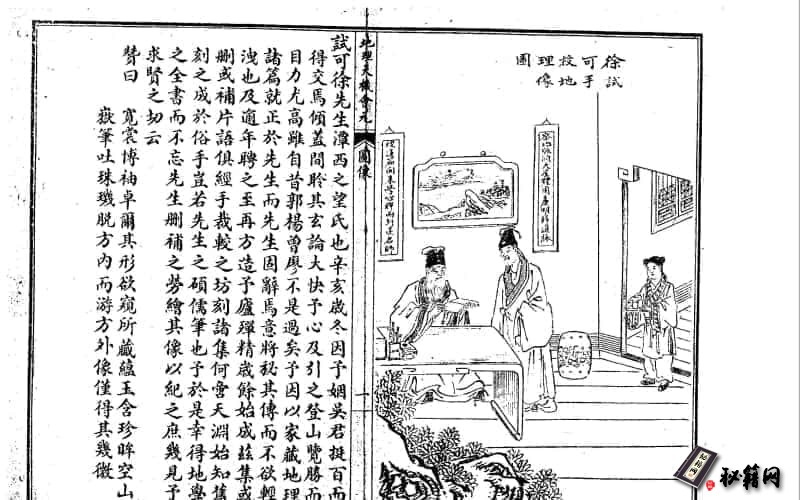 徐試
可手
授地
理像
圖
地理天機會元 圖像
試可徐先生潭西之望氏也辛亥歲冬因予姻吳君挺百而
得交焉傾蓋間聆其玄論大快予心及引之登山覽勝而
目力尤高雖自昔郭楊曾廖不是過矣予因以家藏地理
諸篇就正於先生而先生固辭焉意將秘其傳而不欲輕
洩也及適年聘之至再方造予廬殫精歲餘始成茲集或
刪或補片語俱經手裁較之坊刻諸集何啻天淵始知舊
刻之成於俗手豈若先生之碩儒筆也予於是幸得地學
之全書而不忘先生刪補之勞繪其像以紀之庶幾見予
求賢之切云
贊曰
寬裳博袖卓爾其形欲窺所藏蘊玉含珍眸空山
嶽筆吐珠璣脫方內而游方外像僅得其幾微
秘籍网